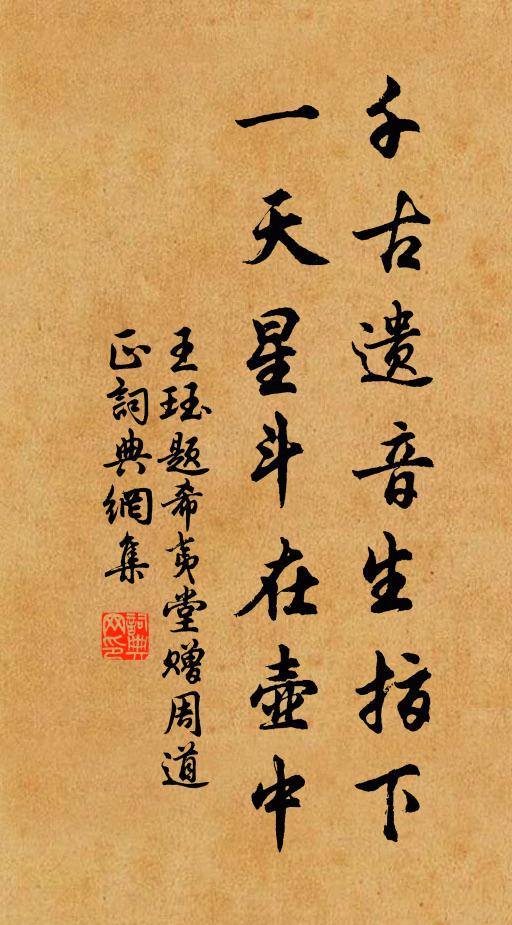 千古遗音生指下
一天星斗在壶中
王珏题希夷堂赠周道
正詞典網集
詞典网印